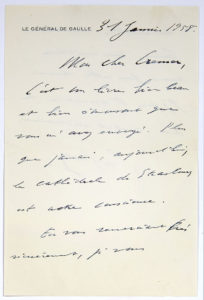 LE GÉNÉRAL DE GAULLE 31 Janvier 1958.
Mon cher Cremer,
C'est un livre bien beau
et bien émouvant que
vous m'avez envoyé. Plus
que jamais, aujourd'hui,
la cathédrale de Strasbourg
est notre conscience.
En vous remerciant très
sincèrement, je vous